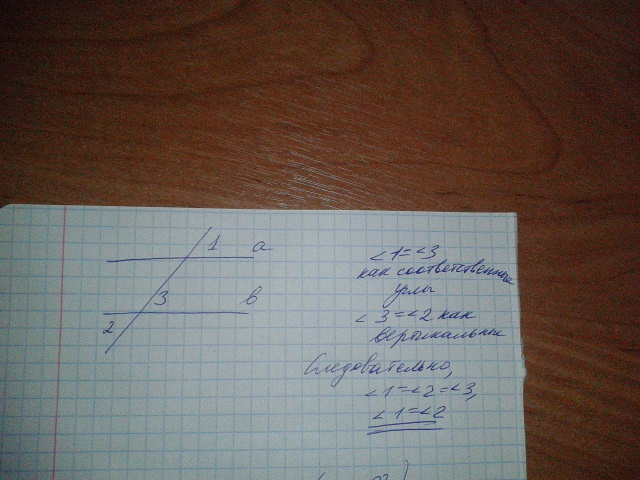 1 a
3 b
2
∠1=∠3
как соответственные
углы
∠3=∠2 как
вертикальные
Следовательно,
∠1=∠2=∠3,
∠1=∠2